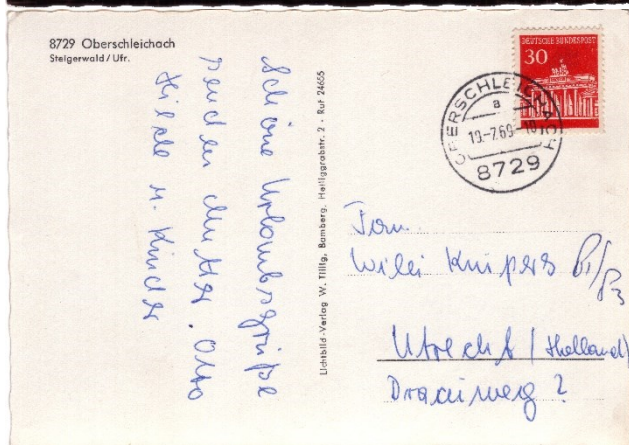 8729 Oberschleichach
Steigerwald / Ufr.
Schöne Urlaubsgrüße
senden Mutter. Otto
Hilde u. Kinder
Lichtbild-Verlag W. Tillig, Bamberg, Heiliggrabstr. 2 · Ruf 24655
DEUTSCHE BUNDESPOST
30
OBERSCHLEICHACH
a
19.-7.69-10
8729
Fam.
Willi Knipers
Utrecht (Holland)